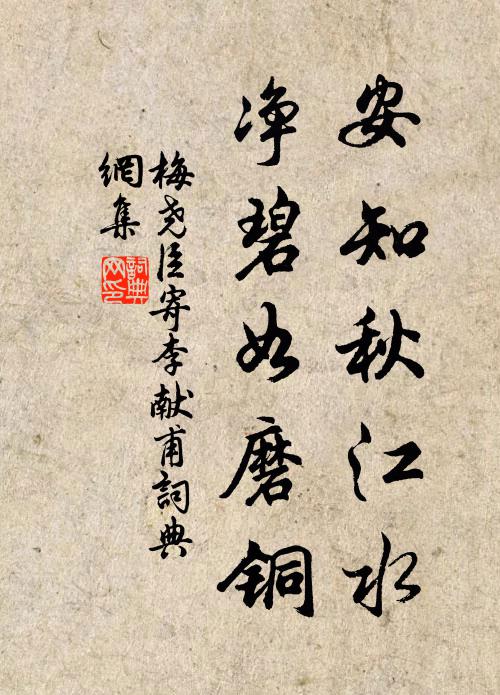 安知秋江水
净碧如磨铜
梅尧臣寄李献甫詞典
網集
詞典
网印